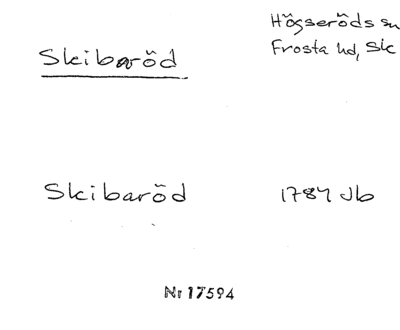 Skibaröd
Högseröds sn
Frosta hd, Sk
Skibaröd 1784 Jb
Nr 17594